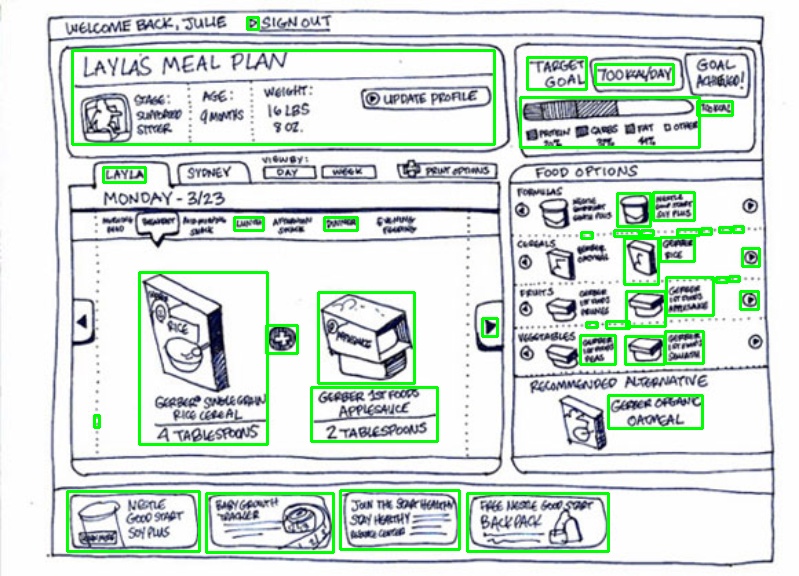 WELCOME BACK, JULIE
SIGN OUT
LAYLA'S MEAL PLAN
STAGE:
SUPPORTED
SITTER
AGE:
9 MONTHS
WEIGHT:
16 LBS
8 OZ.
UPDATE PROFILE
TARGET
GOAL
700 KCAL/DAY
GOAL
ACHIEVED!
PROTEIN
CARBS
FAT
OTHER
LAYLA
SYDNEY
VIEW BY:
DAY
WEEK
PRINT OPTIONS
MONDAY - 3/23
MORNING
FEED
BREAKFAST
MID MORNING
SNACK
LUNCH
AFTERNOON
SNACK
DINNER
EVENING
FEEDING
RICE
GERBER SINGLE GRAIN
RICE CEREAL
4 TABLESPOONS
APPLESAUCE
GERBER 1ST FOODS
APPLESAUCE
2 TABLESPOONS
FOOD OPTIONS
FORMULAS
NESTLE
GOOD START
GENTLE PLUS
NESTLE
GOOD START
SOY PLUS
CEREALS
GERBER
OATMEAL
GERBER
RICE
FRUITS
GERBER
1ST FOODS
PRUNES
GERBER
1ST FOODS
APPLESAUCE
VEGETABLES
GERBER
1ST FOODS
PEAS
GERBER
1ST FOODS
SQUASH
RECOMMENDED ALTERNATIVE
GERBER ORGANIC
OATMEAL
NESTLE
GOOD START
SOY PLUS
BABY GROWTH
TRACKER
JOIN THE START HEALTHY
STAY HEALTHY
RESOURCE CENTER
FREE NESTLE GOOD START
BACKPACK